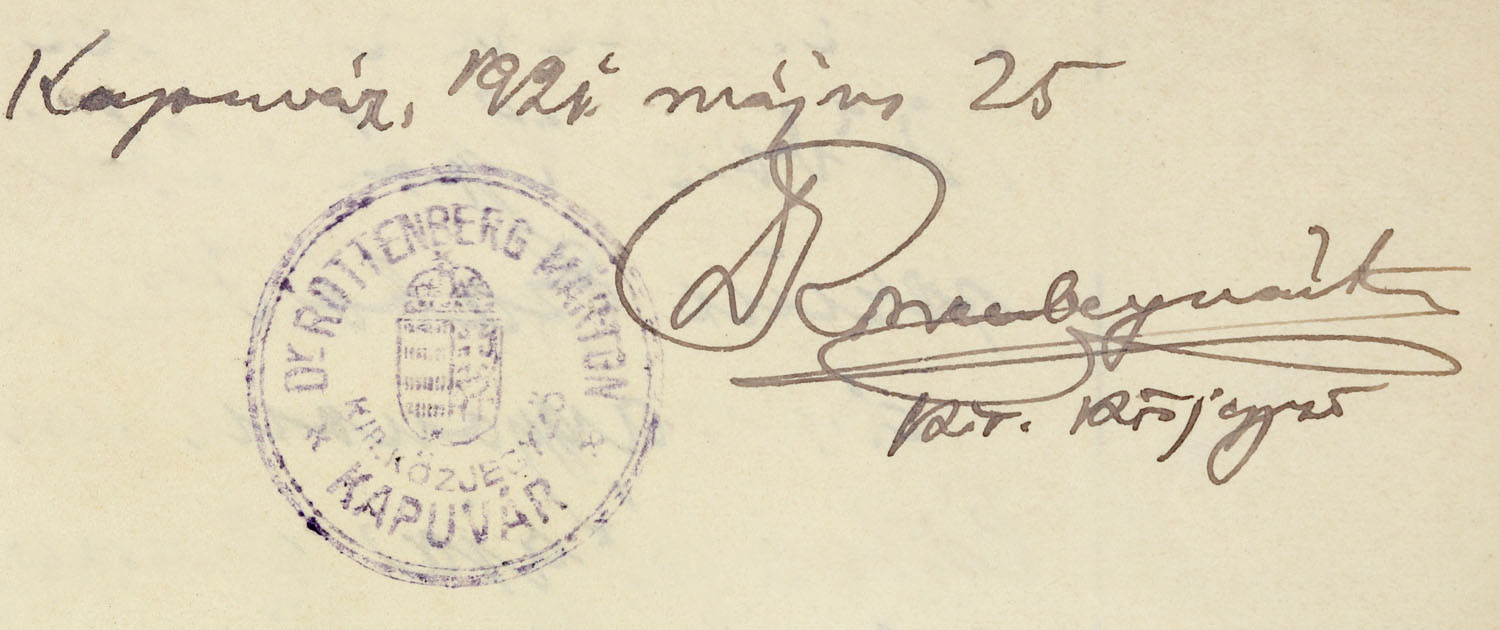 Kapuvár, 1921. május 25
Dr Rottenberg Márton
kir. közjegyző
Dr. ROTTENBERG MÁRTON
KIR. KÖZJEGYZŐ
* KAPUVÁR *